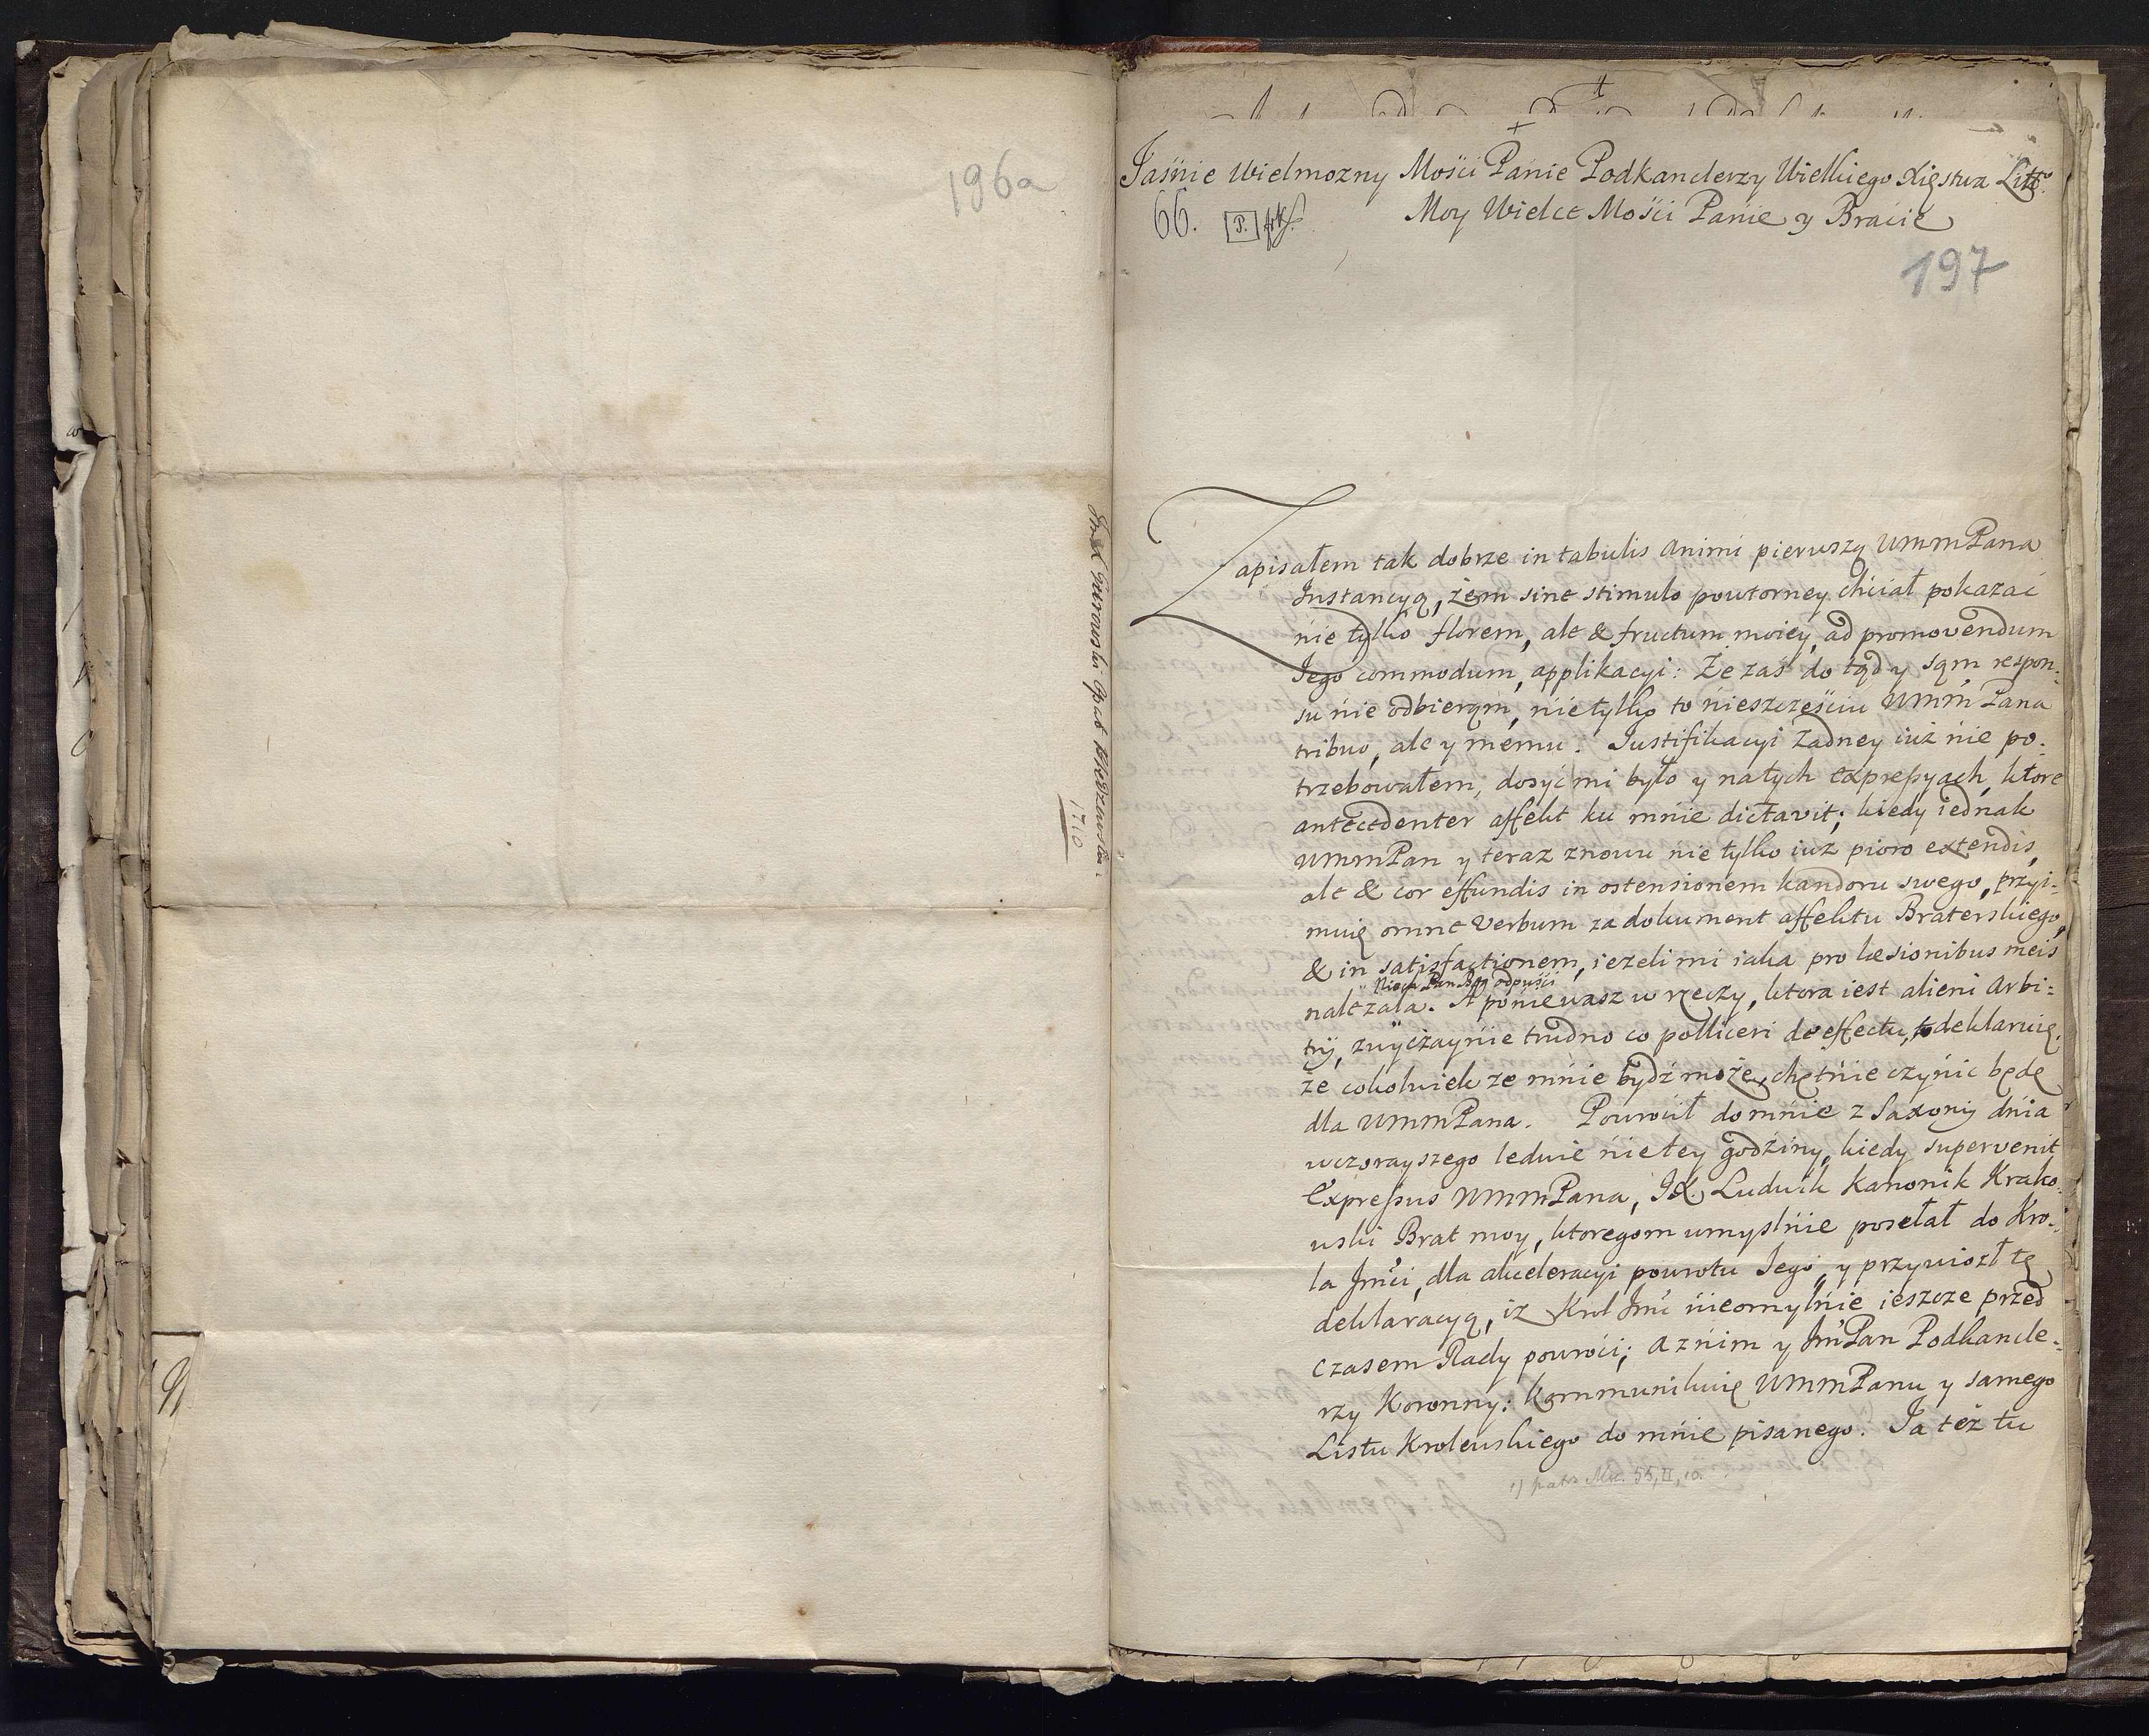 196a
1710
Jaśnie Wielmozny Mości Panie Podkanclerzy Wielkiego Xięstwa Litt°
66. P.
Moy Wielce Mości Panie y Bracie
197
Zapisałem tak dobrze in tabulis animi pierwszą WMMPana
Instancyą, żem sine stimulo powtorney chciał pokazać
nie tylko florem, ale & fructum moiey, ad promovendum
Jego commodum, applikacyi: Że zaś do tąd y sąm respon:
su nie odbierąm, nie tylko to nieszczęściu WMM Pana
tribuo, ale y memu. Justifikacyi żadney iuż nie po:
trzebowałem, dosyć mi było y na tych expressyach, ktore
antecedenter affekt ku mnie dictavit; kiedy iednak
WMMPan y teraz znowu nie tylko iuż pioro extendis,
ale & cor effundis in ostensionem kandoru swego, przyi=
muię omne Verbum za dokument affektu Braterskiego,
& in satisfactionem, ieżeli mi iaka pro læsionibus meis
Niech Pan Bog odpuści
należała. A ponieważ w rzeczy, ktora iest alieni Arbi=
trÿ, zwyczaynie trudno co polliceri de effectu, to deklaruię
że cokolwiek ze mnie bydź może, chętnie czynić będę
dla WMMPana. Powrócił do mnie z Saxonÿ dnia
wczorayszego ledwie nie tey godziny, kiedy supervenit
Expressus WMMPana, JX. Ludwik Kanonik Krako:
wski Brat moy, ktoregom umyślnie posełał do Kro:
la Jmci, dla akceleracyi powrotu Jego, y przywiozł tę
deklaracyą, iż Krol Jmć nieomylnie ieszcze przed
czasem Rady powróci; a z nim y JmPan Podkancle=
rzy Koronny: kommunikuię WMMPanu y samego
Listu Krolewskiego do mnie pisanego. Ja też tu